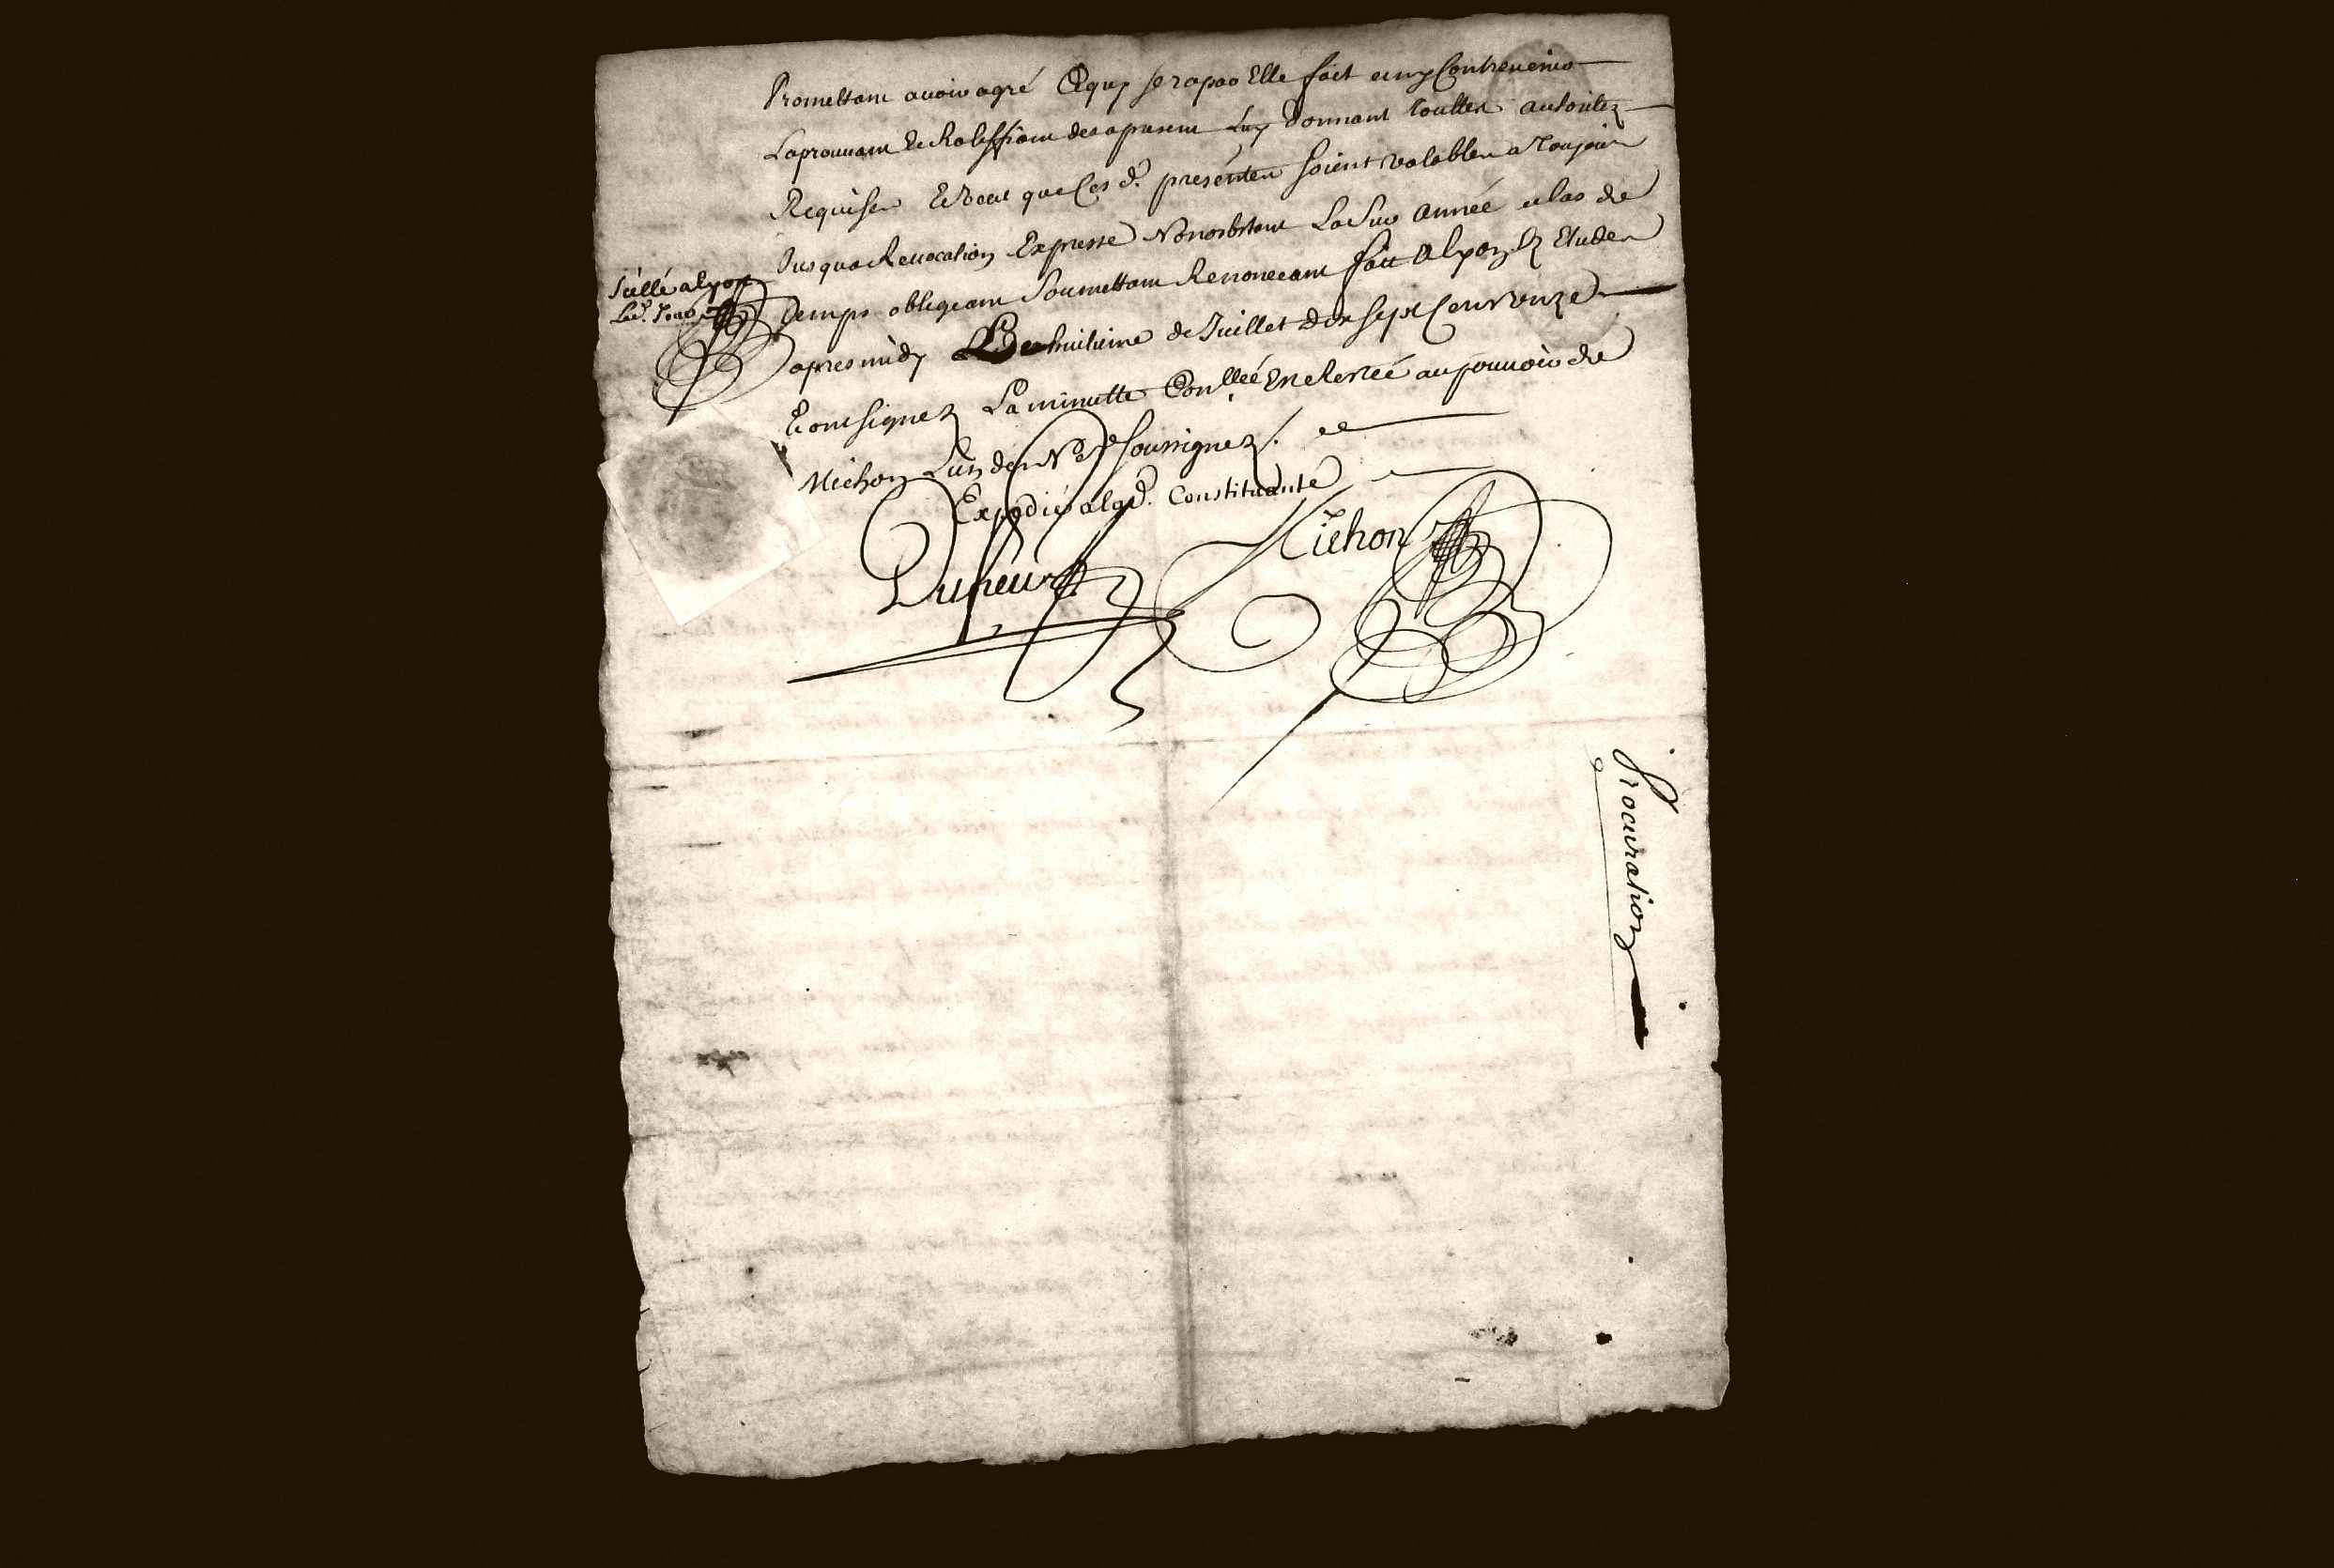 Promettant avoir agré Ce quy sera par Elle fait Contrevenir
Laprouvant et Ratiffiant des a present Luy Donnant touttes autoritez
Requises Et veut que Ces d. presentes soient valables a Toujours
Jusqua Revocation Expresse Nonosbtant La Sur année et laps de
Temps obligeant Soumettant Renonceant fait a lyon Ez Etudes
apres midy Le dix huitieme de Juillet dix sept Cent onze
Et ont Signez La minutte Conllée Et Restée au pouvoir de
Michon Lun des Nres soussignez.
Expedié a lad. Constituante
Sièllé a lyon
Led. Jour
Michon
Procuration